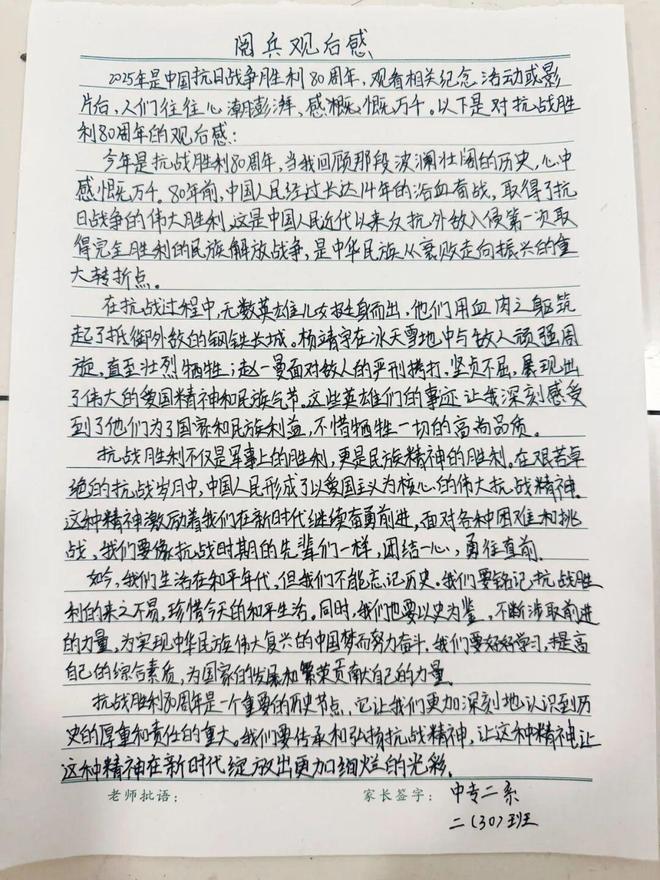 阅兵观后感
2025年是中国抗日战争胜利80周年，观看相关纪念活动或影
片后，人们往往心潮澎湃、感慨慨万千。以下是对抗战胜
利80周年的观后感：
今年是抗战胜利80周年，当我回顾那段波澜壮阔的历史，心中
感慨万千。80年前，中国人民经过长达14年的浴血奋战，取得了抗
日战争的伟大胜利。这是中国人民近代以来反抗外敌入侵第一次取
得完全胜利的民族解放战争，是中华民族从衰败走向振兴的重
大转折点。
在抗战过程中，无数英雄儿女挺身而出，他们用血肉之躯筑
起了抵御外敌的钢铁长城。杨靖宇在冰天雪地中与敌人顽强周
旋，直至壮烈牺牲；赵一曼面对敌人的严刑拷打，坚贞不屈，展现出
了伟大的爱国精神和民族气节。这些英雄们的事迹让我深刻感受
到了他们为了国家和民族利益，不惜牺牲一切的高尚品质。
抗战胜利不仅是军事上的胜利，更是民族精神的胜利。在艰苦卓
绝的抗战岁月中，中国人民形成了以爱国主义为核心的伟大抗战精神。
这种精神激励着我们在新时代继续奋勇前进，面对各种困难和挑
战，我们要像抗战时期的先辈们一样，团结一心，勇往直前。
如今，我们生活在和平年代，但我们不能忘记历史。我们要铭记抗战胜
利的来之不易，珍惜今天的和平生活。同时，我们也要以史为鉴，不断汲取前进
的力量，为实现中华民族伟大复兴的中国梦而努力奋斗。我们要好好学习，提高
自己的综合素质，为国家的发展和繁荣贡献自己的力量。
抗战胜利80周年是一个重要的历史节点，它让我们更加深刻地认识到历
史的厚重和责任的重大。我们要传承和弘扬抗战精神，让这种精神让
这种精神在新时代绽放出更加灿烂的光彩。
老师批语： 家长签字： 中专二系
二（30）班